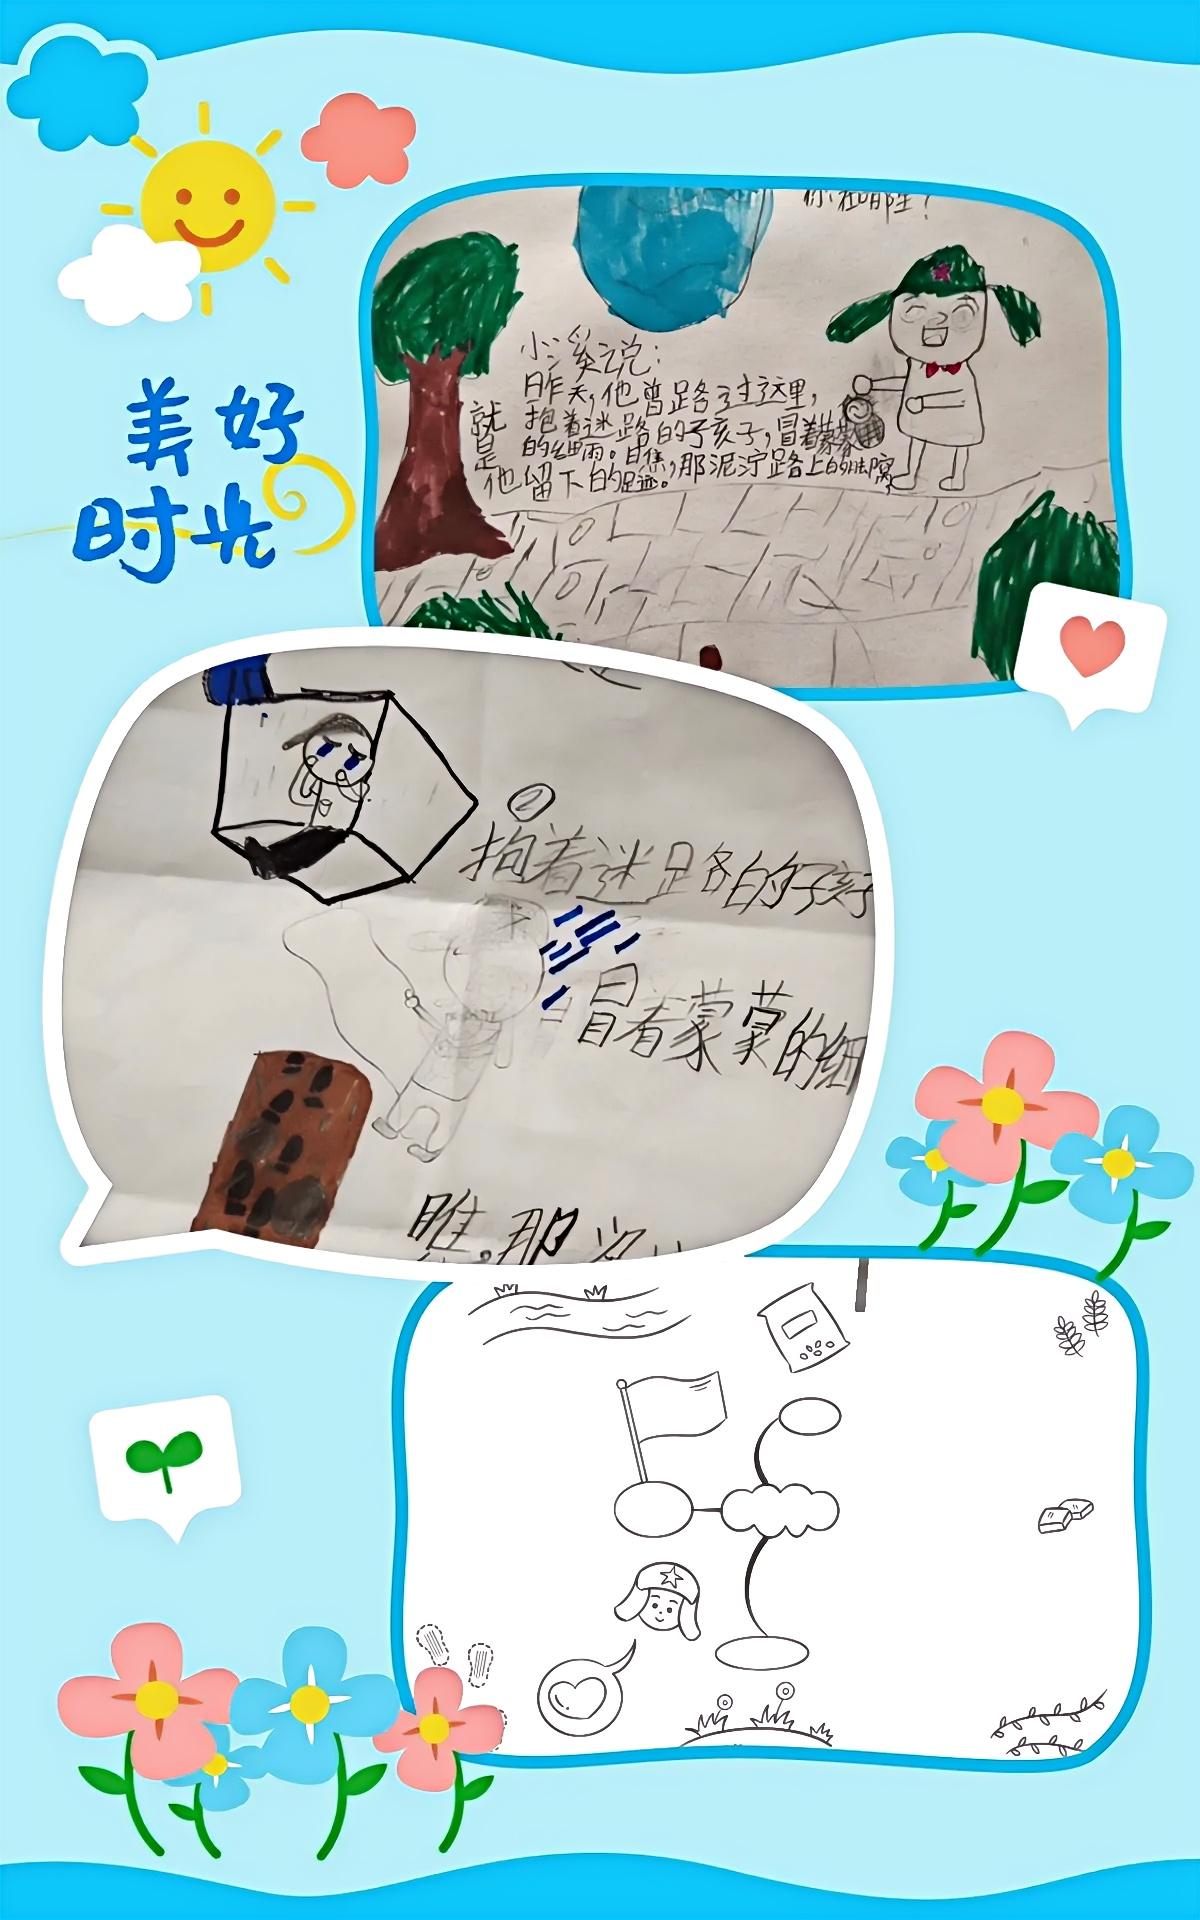 美好
时光
你在哪里?
小溪说:
昨天,他曾路过这里,
抱着迷路的孩子,冒着蒙蒙
的细雨。瞧,那泥泞路上的脚窝,
就是
他留下的足迹。
②
抱着迷路的孩子
冒着蒙蒙的细
瞧。那泥